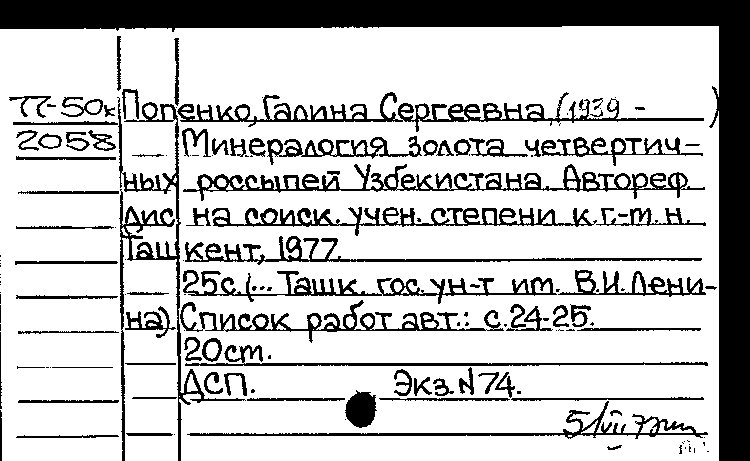 77-50к Попенко, Галина Сергеевна (1939 - )
2058 Минералогия золота четвертич-
ных россыпей Узбекистана. Автореф
дис на соиск. учен. степени к.г.-м.н.
Ташкент, 1977.
25с. (... Ташк. гос. ун-т им. В.И. Лени-
на). Список работ авт.: с.24-25.
20см.
ДСП. Экз. N 74.